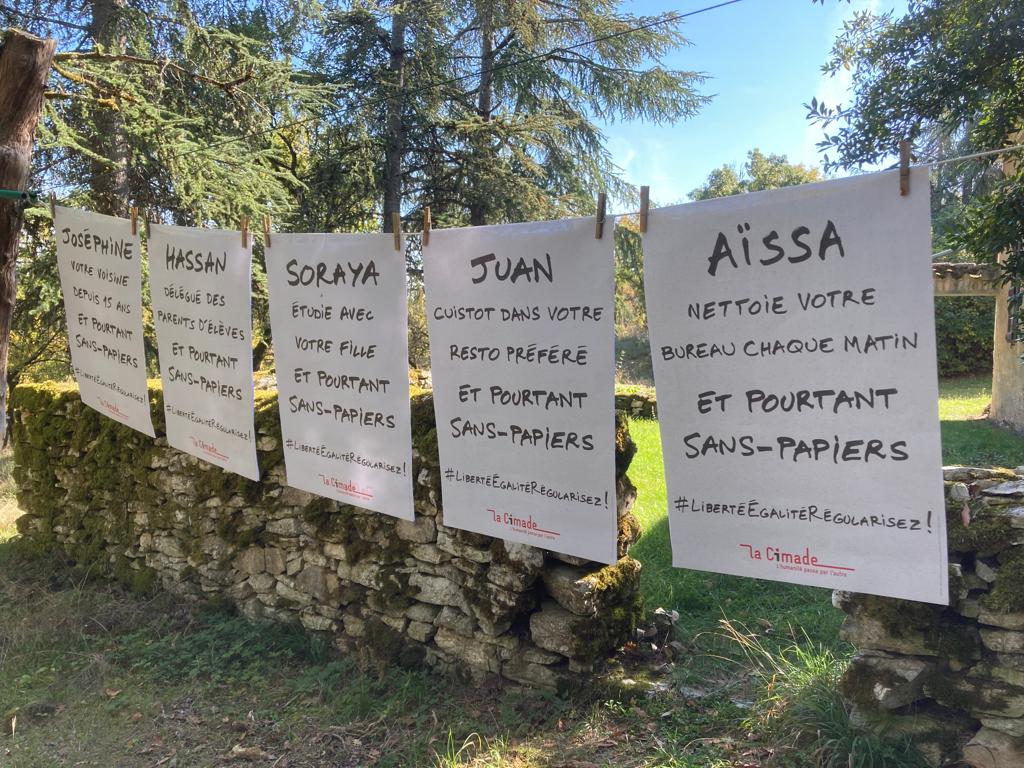 JOSÉPHINE
VOTRE VOISINE
DEPUIS 15 ANS
ET POURTANT
SANS-PAPIERS
#LIBERTÉÉGALITÉRÉGULARISEZ!
la Cimade
HASSAN
DÉLÉGUÉ DES
PARENTS D'ÉLÈVES
ET POURTANT
SANS-PAPIERS
#LIBERTÉÉGALITÉRÉGULARISEZ!
la Cimade
SORAYA
ÉTUDIE AVEC
VOTRE FILLE
ET POURTANT
SANS-PAPIERS
#LIBERTÉÉGALITÉRÉGULARISEZ!
la Cimade
L'humanité passe par l'autre
JUAN
CUISTOT DANS VOTRE
RESTO PRÉFÉRÉ
ET POURTANT
SANS-PAPIERS
#LIBERTÉÉGALITÉRÉGULARISEZ!
la Cimade
L'humanité passe par l'autre
AÏSSA
NETTOIE VOTRE
BUREAU CHAQUE MATIN
ET POURTANT
SANS-PAPIERS
#LIBERTÉÉGALITÉRÉGULARISEZ!
la Cimade
L'humanité passe par l'autre